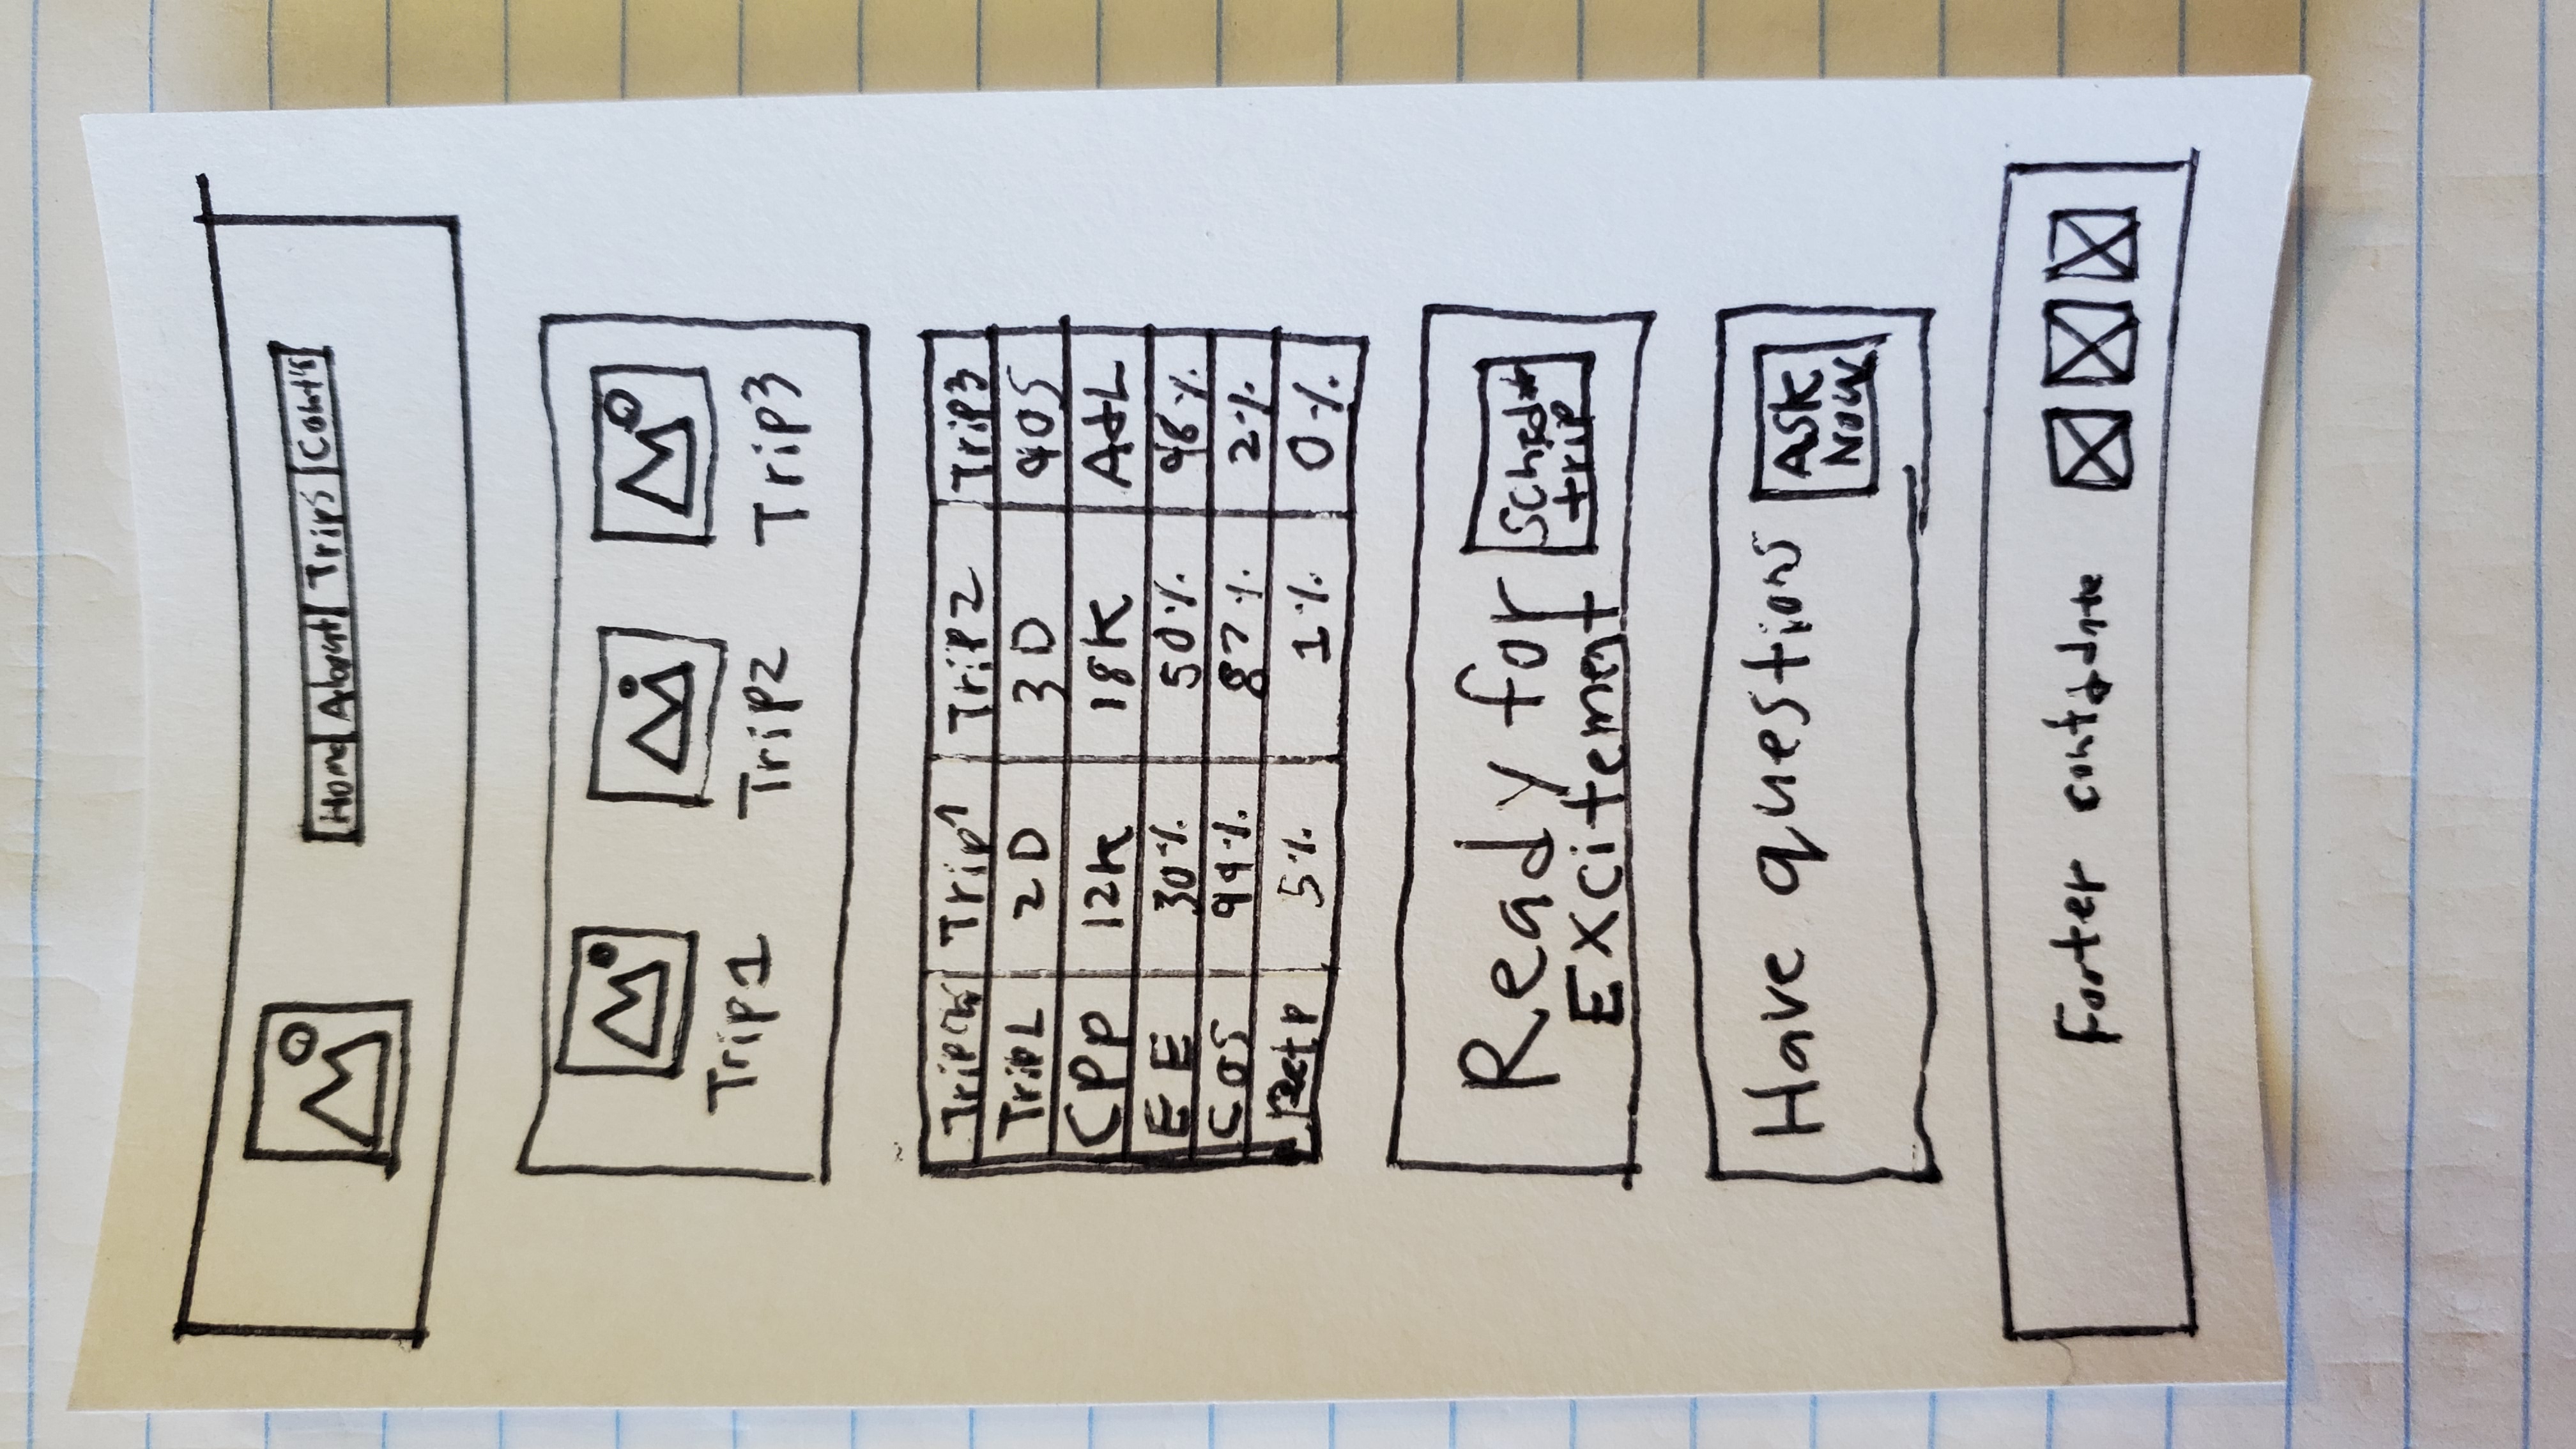 Home About Trips
Trip1 Trip2 Trip3
Trip Trip1 Trip2 Trip3
TripL 2D 3D
CPP 12K 18K A&L
EE 30% 50% 98%
COS 99% 87% 2%
5% 1% 0%
Ready for
Excitement
trip
Have questions
ASK
Now
Footer